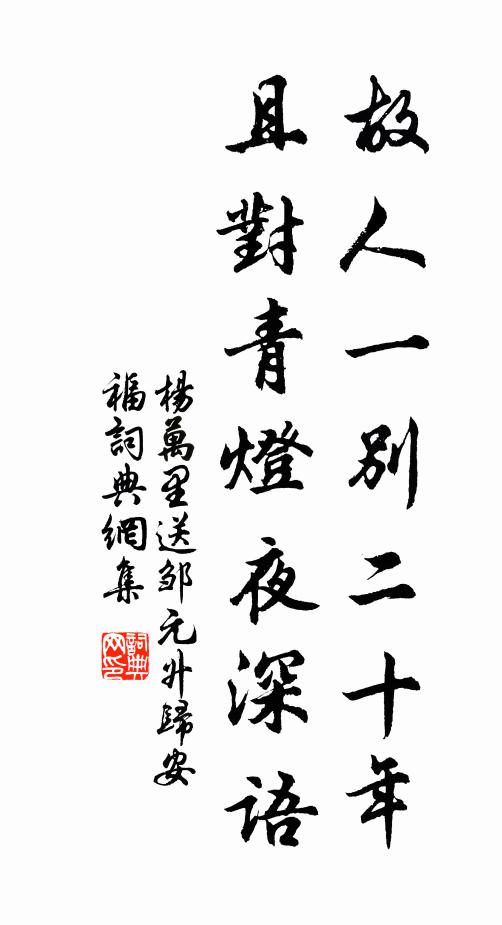 故人一别二十年
且對青燈夜深语
楊萬里送邹元升歸安
福詞典網集
詞典
网印